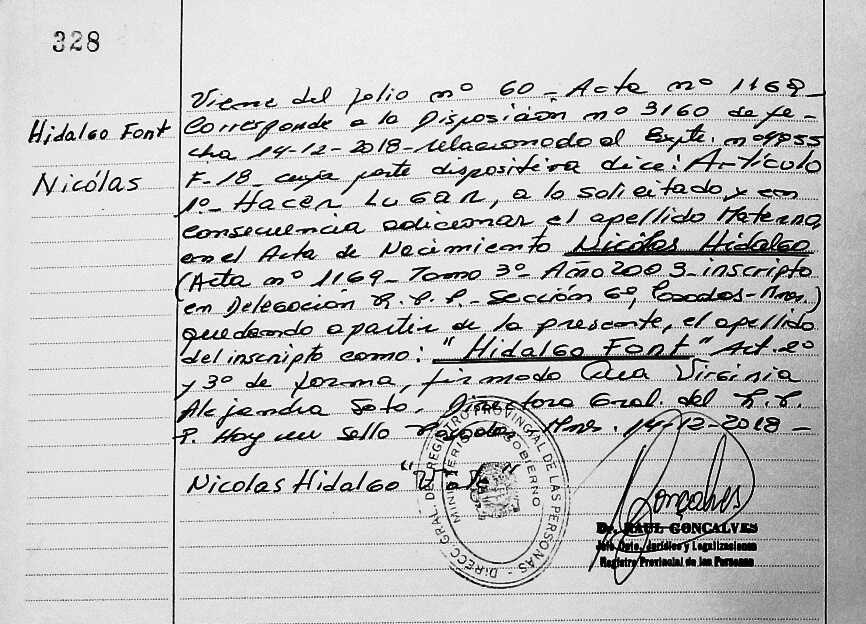 328
Hidalgo Font
Nicólas
Viene del folio nº 60 - Acta nº 1169 -
Corresponde a la Disposición nº 3160 de fe-
cha 14-12-2018 - relacionado al Expte. nº 9855
F-18 - cuya parte dispositiva dice: Artículo
1º - Hacer Lugar, a lo solicitado, y en
consecuencia adicionar el apellido Materno,
en el Acta de Nacimiento Nicólas Hidalgo
(Acta nº 1169 - Tomo 3º - Año 2003 - inscripto
en Delegación R.P.P. - Sección 6º, Posadas - Mnes.)
quedando a partir de la presente, el apellido
del inscripto como: "Hidalgo Font" Art. 2º
y 3º de forma, firmado Virginia
Alejandra Soto, Directora Gral. del R.P.
P. Hay un sello Posadas Mnes. 14-12-2018 -
Nicolas Hidalgo "Vale"
DIRECC. GRAL. DE REGISTRO PROVINCIAL DE LAS PERSONAS
MINISTERIO DE GOBIERNO
Goncalves
Dr. RAUL GONCALVES
Jefe Dpto. Jurídico y Legalizaciones
Registro Provincial de las Personas